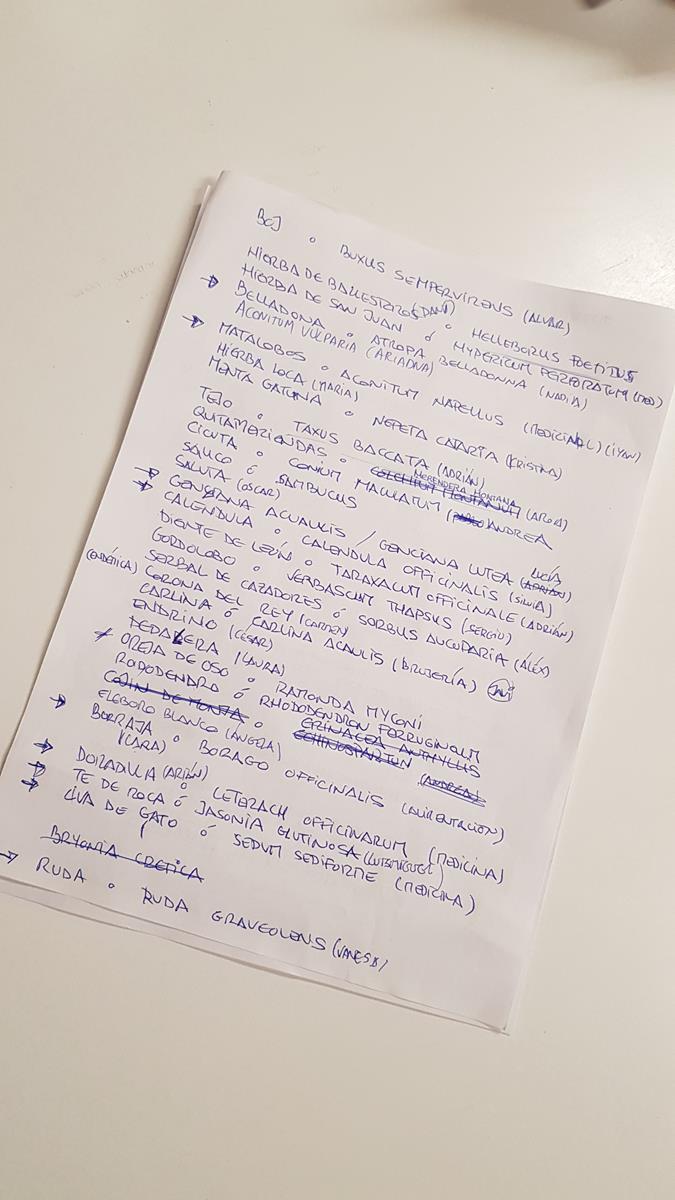 BOJ o BUXUS SEMPERVIRENS (ALVAR)
HIERBA DE BALLESTEROS (DANI) o HELLEBORUS FOETIDUS
→ HIERBA DE SAN JUAN ó HYPERICUM PERFORATUM (MED)
BELLADONA o ATROPA BELLADONNA (NADIA)
ACONITUM VULPARIA (ARIADNA)
→ MATALOBOS o ACONITUM NAPELLUS (MEDICINAL) (IYAN)
HIERBA LOCA (MARIA)
MENTA GATUNA o NEPETA CATARIA (KRISTINA)
TEJO o TAXUS BACCATA (ADRIÁN)
QUITAMERIENDAS o COLCHIUM MONTANUM MERENDERA MONTANA (AROA)
CICUTA o CONIUM MACULATUM ANDREA
SAUCO ó SAMBUCUS
→ SALVIA (OSCAR)
→ GENCIANA ACUAULIS / GENCIANA LUTEA LUCÍA (ADRIÁN)
CALENDULA o CALENDULA OFFICINALIS (SILVIA)
DIENTE DE LEÓN o TARAXACUM OFFICINALE (ADRIÁN)
GORDOLOBO o VERBASCUM THAPSUS (SERGIO)
SERBAL DE CAZADORES ó SORBUS AUCUPARIA (ÁLEX)
(ENDÉMICA) CORONA DEL REY (CARMEN)
CARLINA ó CARLINA ACAULIS (BRUJERÍA) (JAVI)
ENDRINO (CÉSAR)
PEDALERA (LAURA)
OREJA DE OSO o RAMONDA MYCONI
RODODENDRO ó RHODODENDRON FERRUGINEUM
COJIN DE MONJA o ERINACEA ANTHYLLIS ECHINOSPARTUM (ANDREA)
→ ELEBORO BLANCO (ANGELA)
BORRAJA o BORAGO OFFICINALIS (ALIMENTACION)
(CARA)
→ DORADILLA (ARIÁN) o CETERACH OFFICINARUM (MEDICINA)
→ TE DE ROCA ó JASONIA GLUTINOSA (LUISMIGUEL)
→ UVA DE GATO ó SEDUM SEDIFORME (MEDICINA)
BRYONIA CRETICA
→ RUDA o RUDA GRAVEOLENS (VANESA)